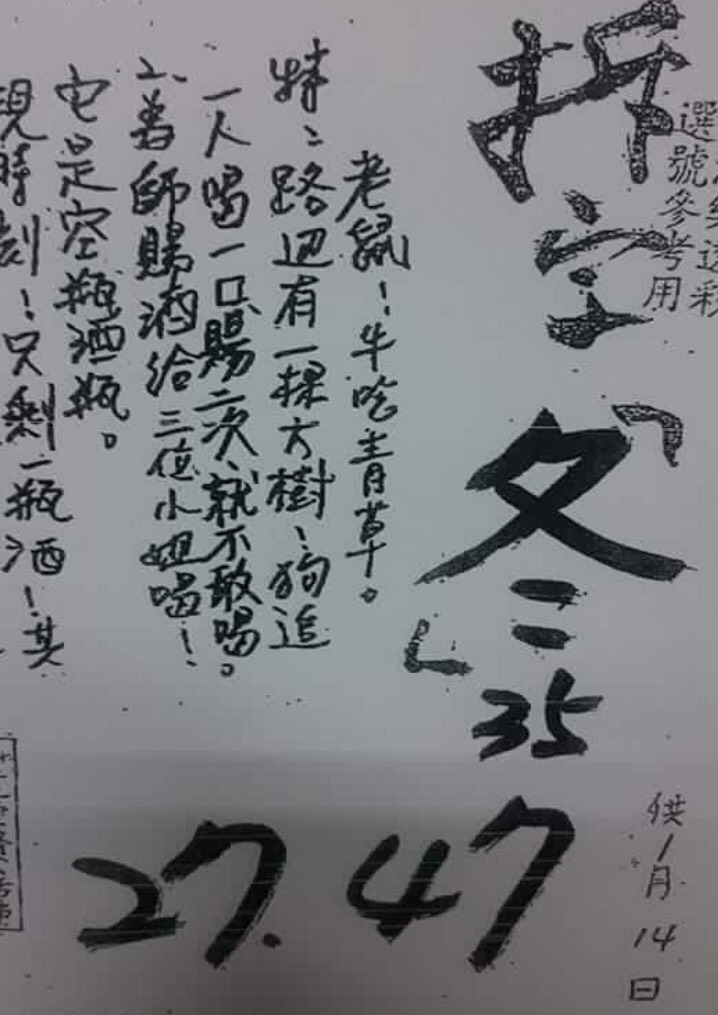 樂透彩
選號參考用
供1月14日
拆字
「冬」
35
47
27.
老鼠！牛吃青草。
特：路迊有一棵大樹、狗追
一人喝一口、賜二次、就不敢喝。
2、為師賜酒給三位小姐喝！
它是空瓶酒瓶。
現時刻！只剩一瓶酒！其